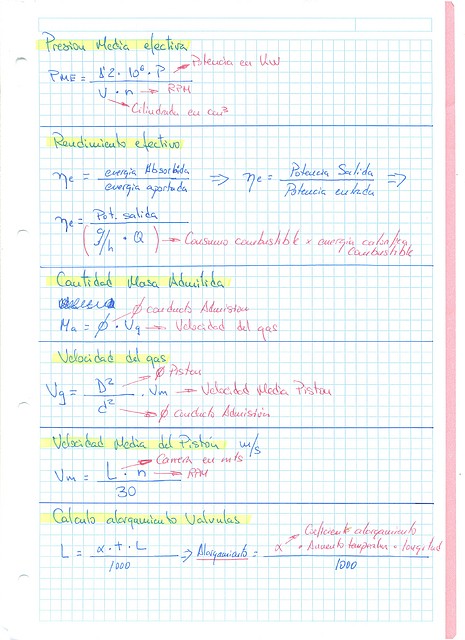 Presion Media efectiva
PME = 1'2 · 10⁶ · P / V · n
Potencia en Kw
RPM
Cilindrada en cm³
Rendimiento efectivo
ηe = energia Absorbida / energia aportada ⇒ ηe = Potencia Salida / Potencia entrada ⇒
ηe = Pot. salida / (g/h · Q) → Consumo combustible x energia calorifica combustible
Cantidad Masa Admitida
Ø conducto Admision
Ma = Ø · Vg → Velocidad del gas
Velocidad del gas
Ø Piston
Vg = D² / d² · Vm → Velocidad Media Piston
Ø conducto Admisión
Velocidad Media del Pistón m/s
Carrera en mts
Vm = L · n / 30 → RPM
Calculo alargamiento Valvulas
Coeficiente alargamiento
L = α · t · L / 1000 ⇒ Alargamiento = α · Aumento temperatura · longitud / 1000